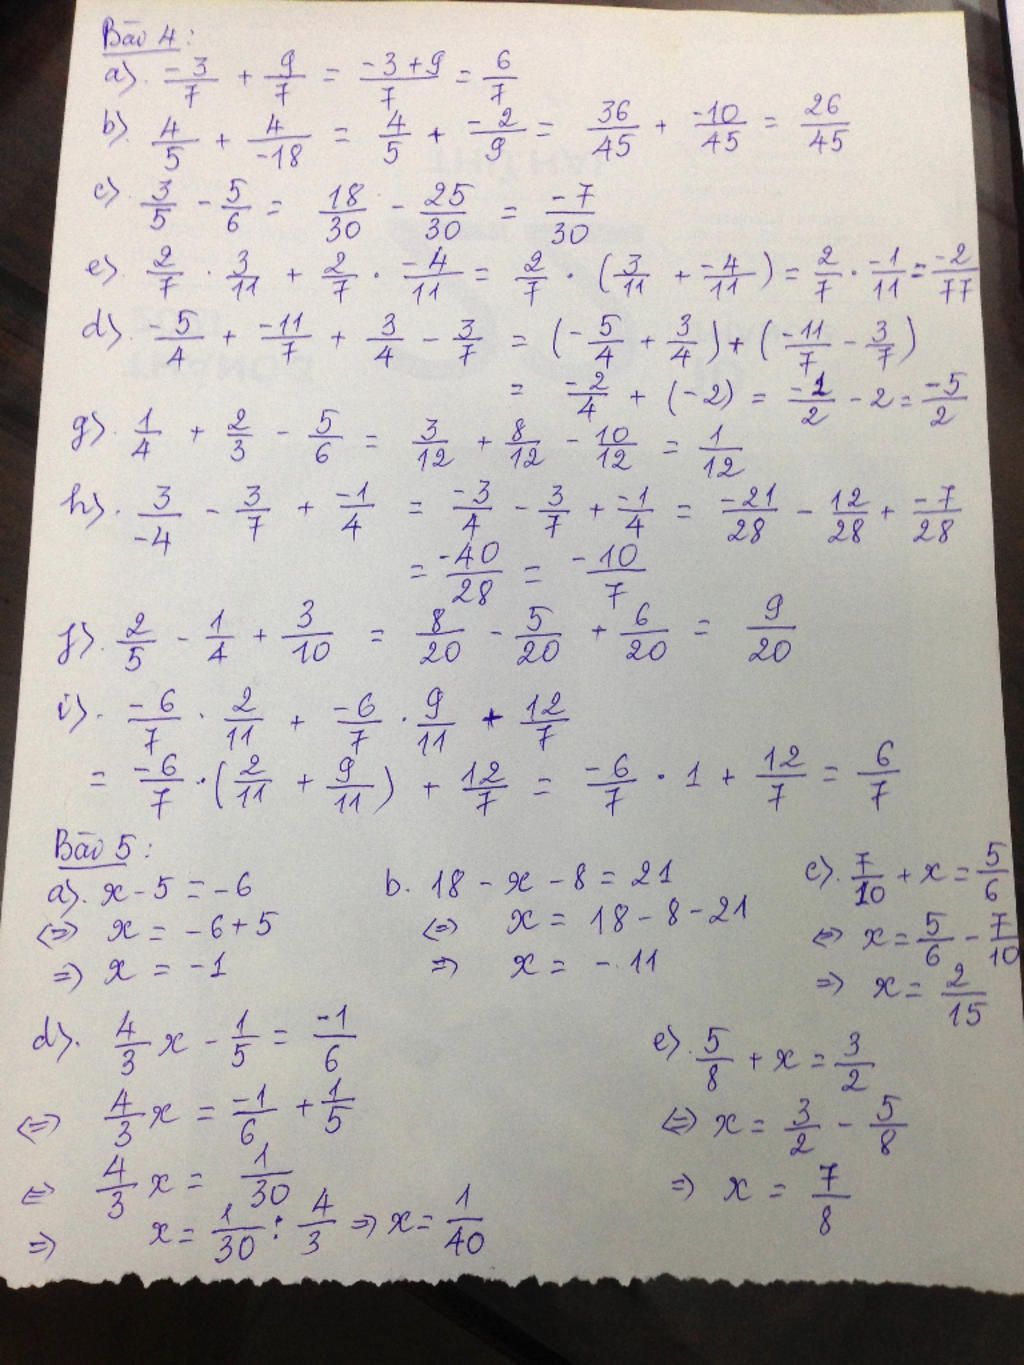 Bài 4:
a). -3/7 + 9/7 = (-3+9)/7 = 6/7
b). 4/5 + 4/-18 = 4/5 + -2/9 = 36/45 + -10/45 = 26/45
c). 3/5 - 5/6 = 18/30 - 25/30 = -7/30
e). 2/7 . 3/11 + 2/7 . -4/11 = 2/7 . (3/11 + -4/11) = 2/7 . -1/11 = -2/77
d). -5/4 + -11/7 + 3/4 - 3/7 = (-5/4 + 3/4) + (-11/7 - 3/7)
= -2/4 + (-2) = -1/2 - 2 = -5/2
g). 1/4 + 2/3 - 5/6 = 3/12 + 8/12 - 10/12 = 1/12
h). 3/-4 - 3/7 + -1/4 = -3/4 - 3/7 + -1/4 = -21/28 - 12/28 + -7/28
= -40/28 = -10/7
f). 2/5 - 1/4 + 3/10 = 8/20 - 5/20 + 6/20 = 9/20
i). -6/7 . 2/11 + -6/7 . 9/11 + 12/7
= -6/7 . (2/11 + 9/11) + 12/7 = -6/7 . 1 + 12/7 = 6/7
Bài 5:
a). x - 5 = -6
<=> x = -6 + 5
=> x = -1
b. 18 - x - 8 = 21
<=> x = 18 - 8 - 21
=> x = -11
c). 7/10 + x = 5/6
<=> x = 5/6 - 7/10
=> x = 2/15
d). 4/3 x - 1/5 = -1/6
<=> 4/3 x = -1/6 + 1/5
<=> 4/3 x = 1/30
=> x = 1/30 : 4/3 => x = 1/40
e). 5/8 + x = 3/2
<=> x = 3/2 - 5/8
=> x = 7/8